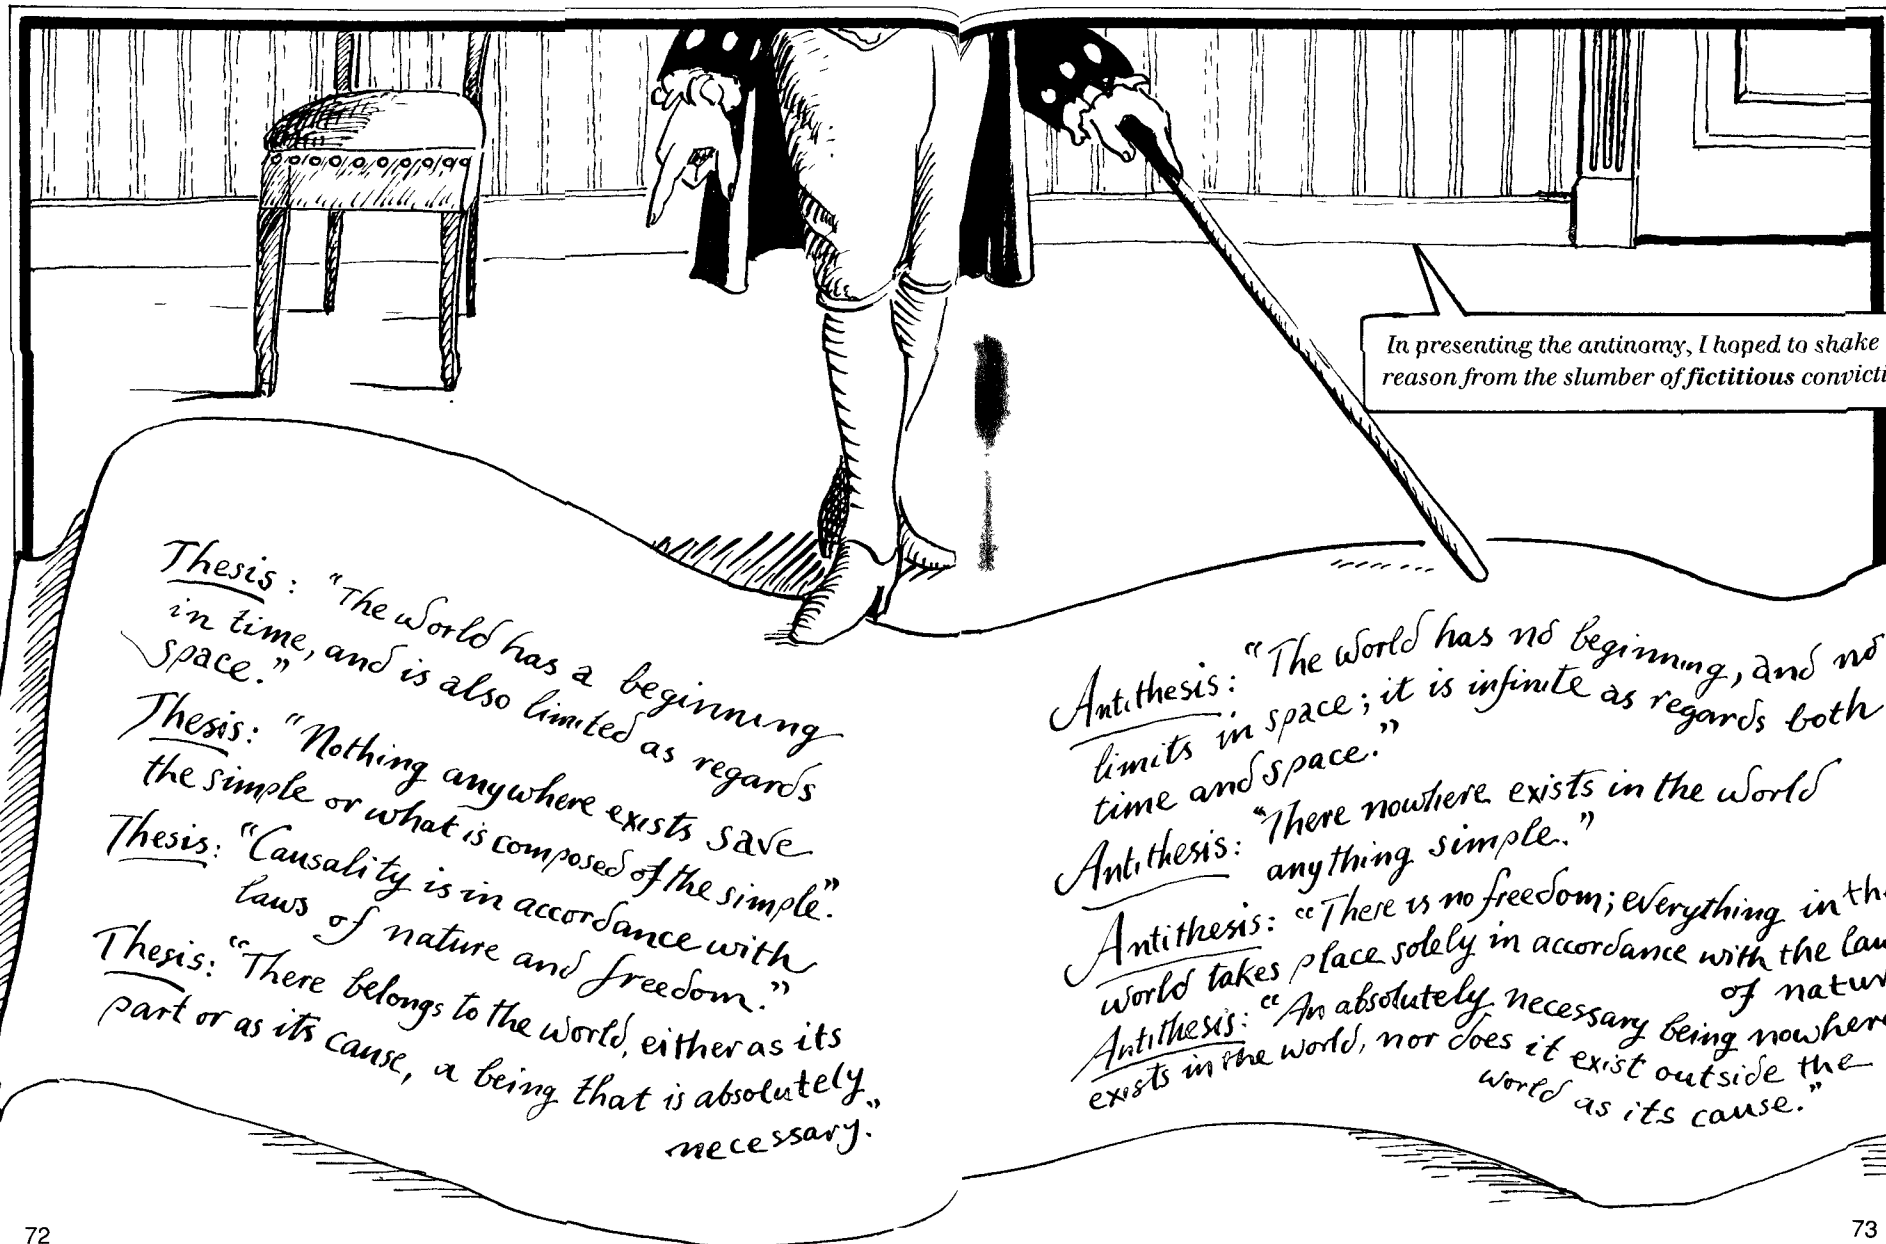 In presenting the antinomy, I hoped to shake
reason from the slumber of fictitious convicti
Thesis: "The world has a beginning
in time, and is also limited as regards
space."
Thesis: "Nothing anywhere exists save
the simple or what is composed of the simple".
Thesis: "Causality is in accordance with
laws of nature and freedom."
Thesis: "There belongs to the world, either as its
part or as its cause, a being that is absolutely
necessary."
Antithesis: "The world has no beginning, and no
limits in space; it is infinite as regards both
time and space."
Antithesis: "There nowhere exists in the world
anything simple."
Antithesis: "There is no freedom; everything in the
world takes place solely in accordance with the law
of natur
Antithesis: "An absolutely necessary being nowhere
exists in the world, nor does it exist outside the
world as its cause."
72
73